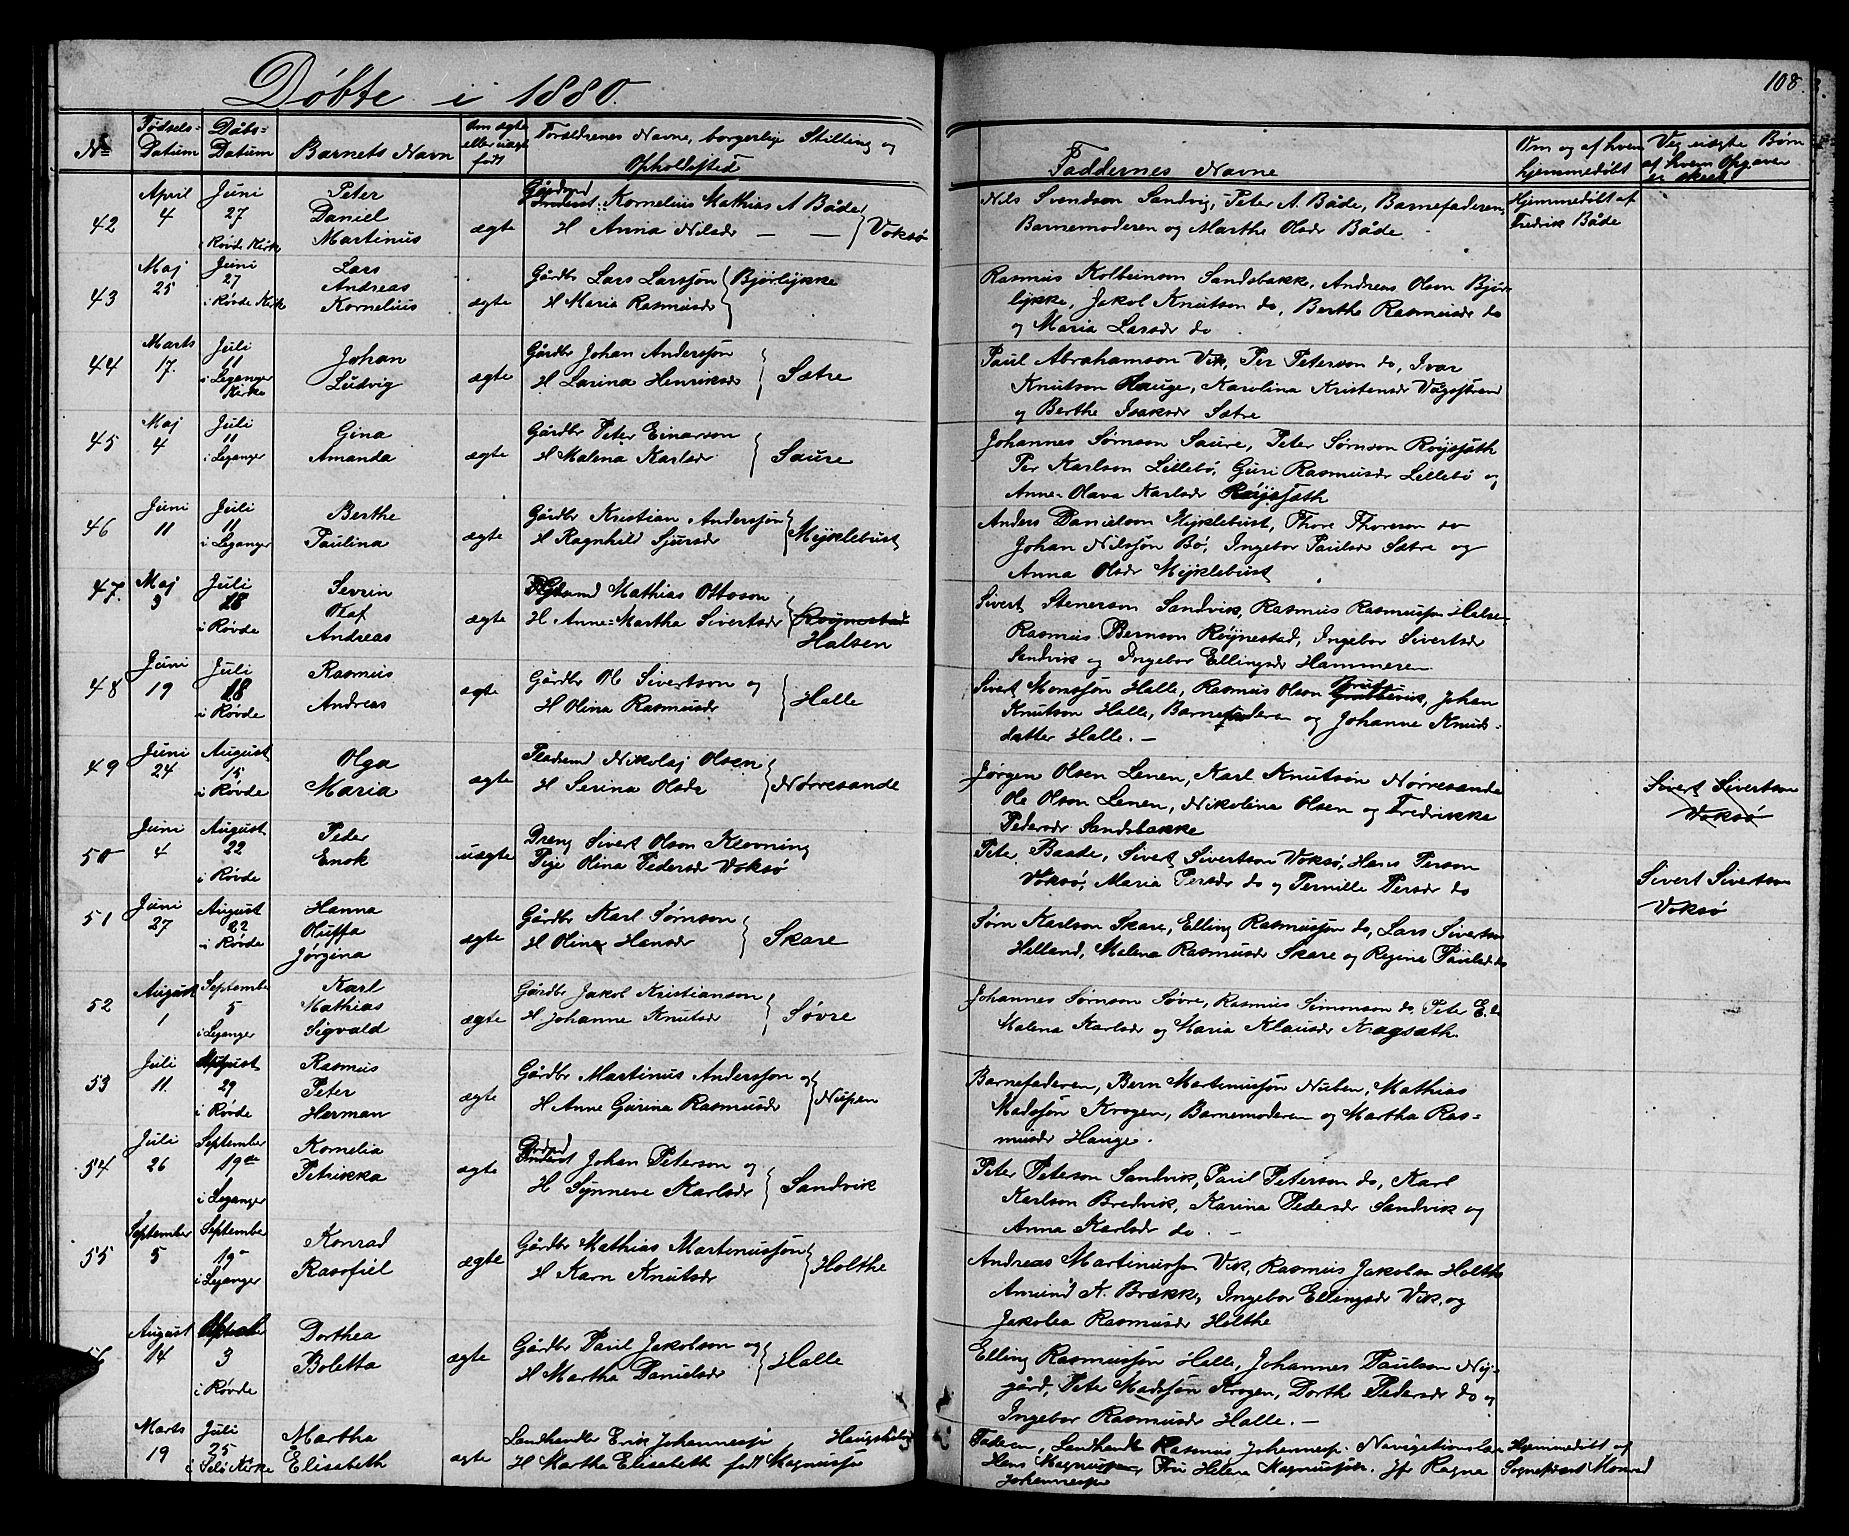 Døbte i 1880.
108
No
Fødsels=
Datum
Dåbs=
Datum
Barnets Navn
Om ægte
eller uægte
født
Forældrenes Navne, borgerlige Stilling og
Opholdssted
Faddernes Navne
Om og af hvem
hjemmedøbt
Ved uægte Børn
af hvem Opgaver
er skeet
42
April
4
Juni
27
i Røvde Kirke
Peter
Daniel
Martinus
ægte
Gårdmd
Kornelius Mathias A Både
H Anna Nilsdr — —
Voksø
Nils Svendson Sandvig, Peter A. Både, Barnefaderen,
Barnemoderen og Marthe Olsdr Både
Hjemmedøbt af
Fredrik Både
43
Maj
25
Juni
27
i Røvde Kirk
Lars
Andreas
Kornelius
ægte
Gårdbr Lars Larssøn
H Maria Rasmusdr
Bjørlykke
Rasmus Kolbeinson Sandsbakk, Andreas Olson Bjør
lykke, Jakob Knutson do, Berthe Rasmusdr do
og Maria Larsdr do
44
Marts
17.
Juli
11
i Leganger
Kirke
Johan
Ludvig
ægte
Gårdbr Johan Anderssøn
H Larina Henriksdr
Sætre
Paul Abrahamson Vik, Per Peterson do, Ivar
Knutson Hauge, Karolina Kristensdr Vågstrand
og Berthe Isaksdr Sætre
45
Maj
4
Juli
11
i Leganger
Gina
Amanda
ægte
Gårdbr Peter Einarson
H Malena Karlsdr
Saure
Johannes Sørnson Saure, Peter Sørnson Røysæth
Per Karlson Lillebø, Guri Rasmusdr Lillebø og
Anne-Olava Karlsdr Røysæth
46
Juni
11
Juli
11
i Leganger
Berthe
Paulina
ægte
Gårdbr Kristian Anderssøn
H Ragnhild Sjursdr
Myklebust
Anders Danielson Myklebust, Thore Thoreson do
Johan Nilssøn Bø, Ingebor Paulsdr Sætre og
Anna Olsdr Myklebust
47.
Maj
3
Juli
18
i Røvde
Sevrin
Olaf
Andreas
ægte
Mathias Ottoson
H Anne-Martha Sivertsdr
Røynestad
Halsen
Sivert Stenerson Sandvik, Rasmus Rasmussøn Halse-
Rasmus Bernson Røynestad, Ingebor Sivertsdr
Sandvik og Ingebor Ellingsdr Hammeren
48
Juni
19
Juli
18
i Røvde
Rasmus
Andreas
ægte
Gårdbr Ole Sivertson og
H Olina Rasmusdr
Halle
Sivert Monssøn Halle, Rasmus Olson Johan
Knutson Halle, Barnefaderen og Johanne Knuds-
datter Halle. —
49
Juni
24
August
15
i Røvde
Olga
Maria
ægte
Pladsmd Nikolaj Olsen
H Serina Olsdr
Nørresande
Jørgen Olsen Lenen, Karl Knutson Nørresande
Ole Olson Lenen, Nikolina Olsen og Fredrikke
Pedersdr Sandsbakke
Sivert Sivertson
Voksø
50
Juni
4
August
22
i Røvde
Peder
Enok
uægte
Dreng Sivert Olson Klovning
Pige Olina Pedersdr Voksø
Pete Baade, Sivert Sivertson Voksø, Hans Person
Voksø, Maria Persdr do og Pernille Persdr do
Sivert Sivertson
Voksø
51
Juni
27
August
22
i Røvde
Hanna
Oluffa
Jørgina
ægte
Gårdbr Karl Sørnson
H Olina Hansdr
Skare
Sørn Karlson Skare, Elling Rasmussøn do, Lars Sivertson
Helland, Malena Rasmusdr Skare og Regine Paulsd do
52
August
1
September
5
i Leganger
Karl
Mathias
Sigvald
ægte
Gårdbr Jakob Kristianson
H Johanne Knutsdr
Søvre
Johannes Sørnson Søvre, Rasmus Simonson do, Peter E. do
Malena Karlsdr og Maria Klausdr Kragsæth.
53
Juli
11.
August
29
i Røvde
Rasmus
Peter
Herman
ægte
Gårdbr Martinus Anderssøn og
H Anne Gurina Rasmusdr
Nupen
Barnefaderen, Bern Martinussøn Nuben, Mathias
Madssøn Krogen, Barnemoderen og Martha Ras-
musdr Hauge.
54
Juli
26
September
19de
i Leganger
Kornelia
Petrikka
ægte
Johan Peterson og
H Synneve Karlsdr
Sandvik
Peter Peterson Sandvik, Paul Peterson do, Karl
Karlson Bredvik, Karina Pedersdr Sandvik og
Anna Karlsdr do. —
55
September
5
September
19
i Leganger
Konrad
Rasofiel
ægte
Gårdbr Mathias Martinussøn
H Karn Knutsdr
Holthe
Andreas Martinussøn Vik, Rasmus Jakobson Holthe
Amund K. Brækk, Ingebor Ellingsdr Vik, og
Jakobea Rasmusdr Holthe
56
August
14
3
i Røvde
Dorthea
Boletta
ægte
Gårdbr Paul Jakobson og
H Martha Danielsdr
Halle
Elling Rasmussøn Halle, Johannes Paulson Ny-
gård, Pete Madssøn Krogen, Dorthe Pedersdr do og
Ingebor Rasmusdr Halle. —
Marts
19
Juli
25
i Selø Kirke
Martha
Elisabeth
ægte
Landhandler Erik Johannessø
H Martha Elisabeth født Magnussø
Faderen, Landhandl Rasmus Johannesse. Navigationslær
Hans Magnussen, Fru Helena Magnussøn. Jfr Ragna
Johannesse
Hjemmedøbt af
Sogneprest Monrad